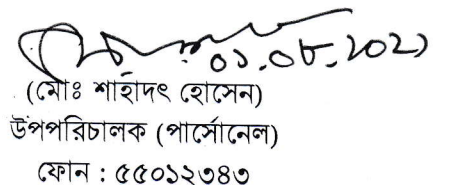 ০১.০৮.২০২১
(মোঃ শাহাদৎ হোসেন)
উপপরিচালক (পার্সোনেল)
ফোন : ৫৫০১২৩৪৩